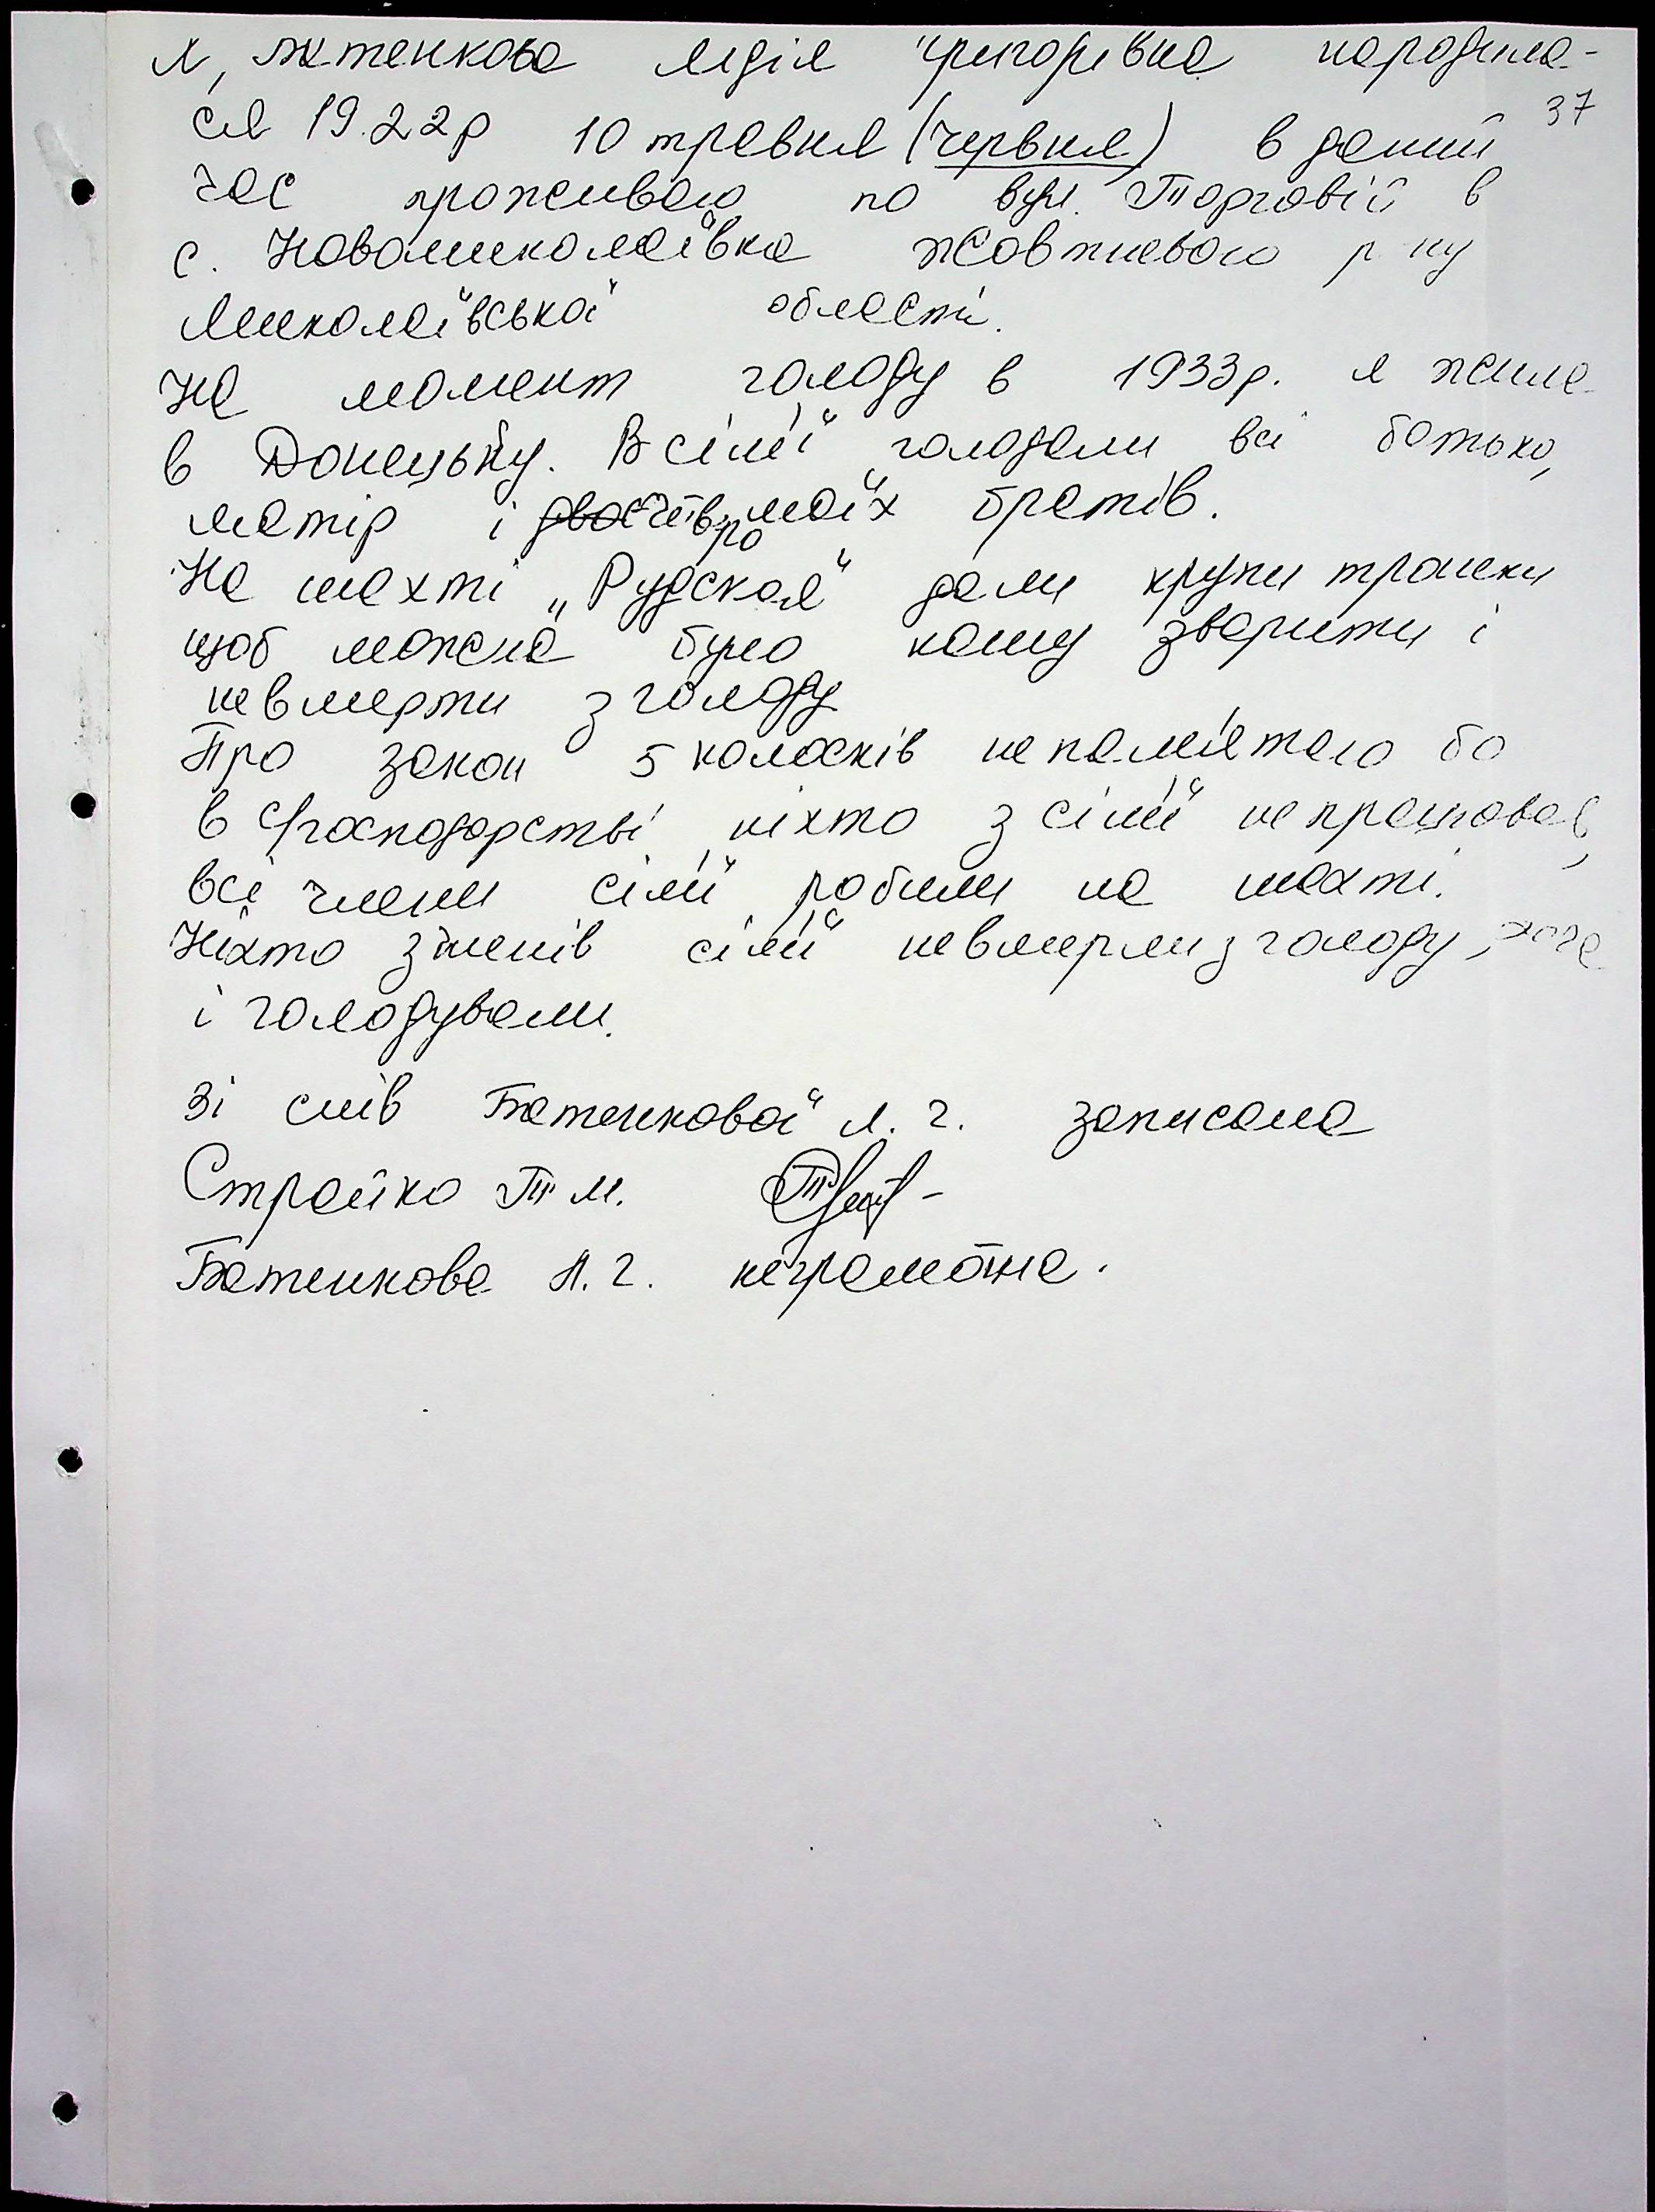 Я, Батенкова Лідія Григорівна народила-
ся 19.22р 10 травня (червня) в даний 37
час проживаю по вул. Торговій в
с. Новомиколаївка Жовтневого р ну
Миколаївської області.
На момент голоду в 1933р. я жила
в Донецьку. В сім'ї голодали всі батько,
матір і двоє четверо моїх братів.
На шахті „Рудская" дали крупи трошки
щоб можна було кашу зварити і
не вмерти з голоду
Про закон 5 колосків не пам'ятаю бо
в с/господарстві ніхто з сім'ї не працював,
всі члени сім'ї робили на шахті.
Ніхто з членів сім'ї не вмерли з голоду, хоча
і голодували.
Зі слів Батенкової Л. Г. записала
Страйко Т М.
Батенкова Л. Г. неграмотна.